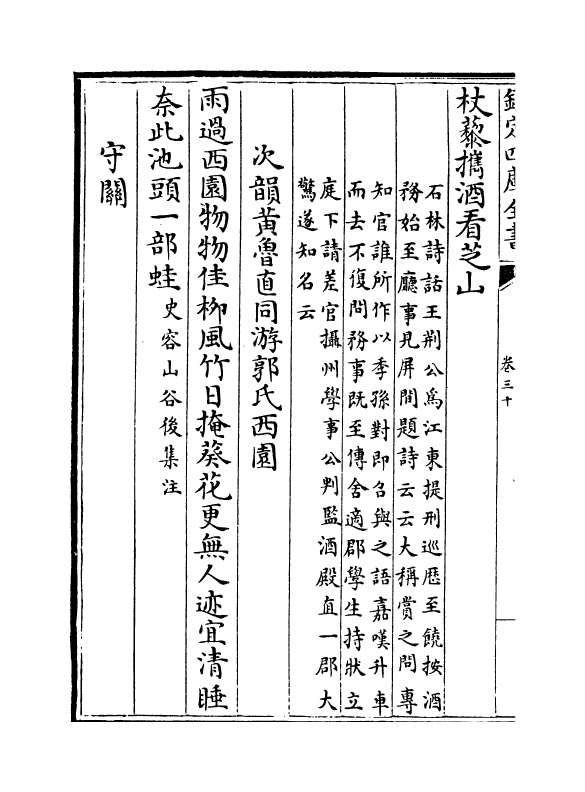 欽定四庫全書
卷三十
杖藜攜酒看芝山
石林詩話王荆公為江東提刑巡歴至饒按酒
務始至廳事見屏間題詩云云大稱賞之問專
知官誰所作以季孫對即召與之語嘉嘆升車
而去不復問務事既至傳舍適郡學生持狀立
庭下請差官攝州學事公判監酒殿直一郡大
驚遂知名云
次韻黄魯直同游郭氏西園
雨過西園物物佳栁風竹日掩葵花更無人迹宜清睡
奈此池頭一部蛙史容山谷後集注
守關